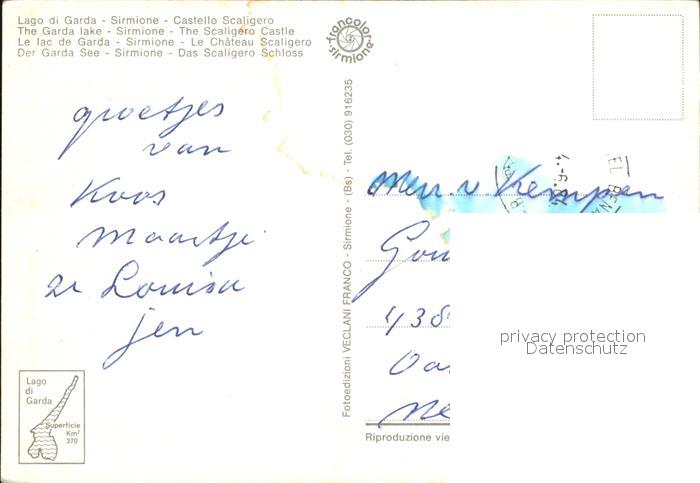 Lago di Garda - Sirmione - Castello Scaligero
The Garda lake - Sirmione - The Scaligero Castle
Le lac de Garda - Sirmione - Le Château Scaligero
Der Garda See - Sirmione - Das Scaligero Schloss
francolor
sirmione
groetjes
van
Koos
Maartje
Louisa
jen
Fotoedizioni VECLANI FRANCO - Sirmione - (Bs) - Tel. (030) 916235
v. Kempen
Gou
438
Oa
Ne
privacy protection
Datenschutz
Riproduzione vie
Lago
di
Garda
Superficie
Km²
370